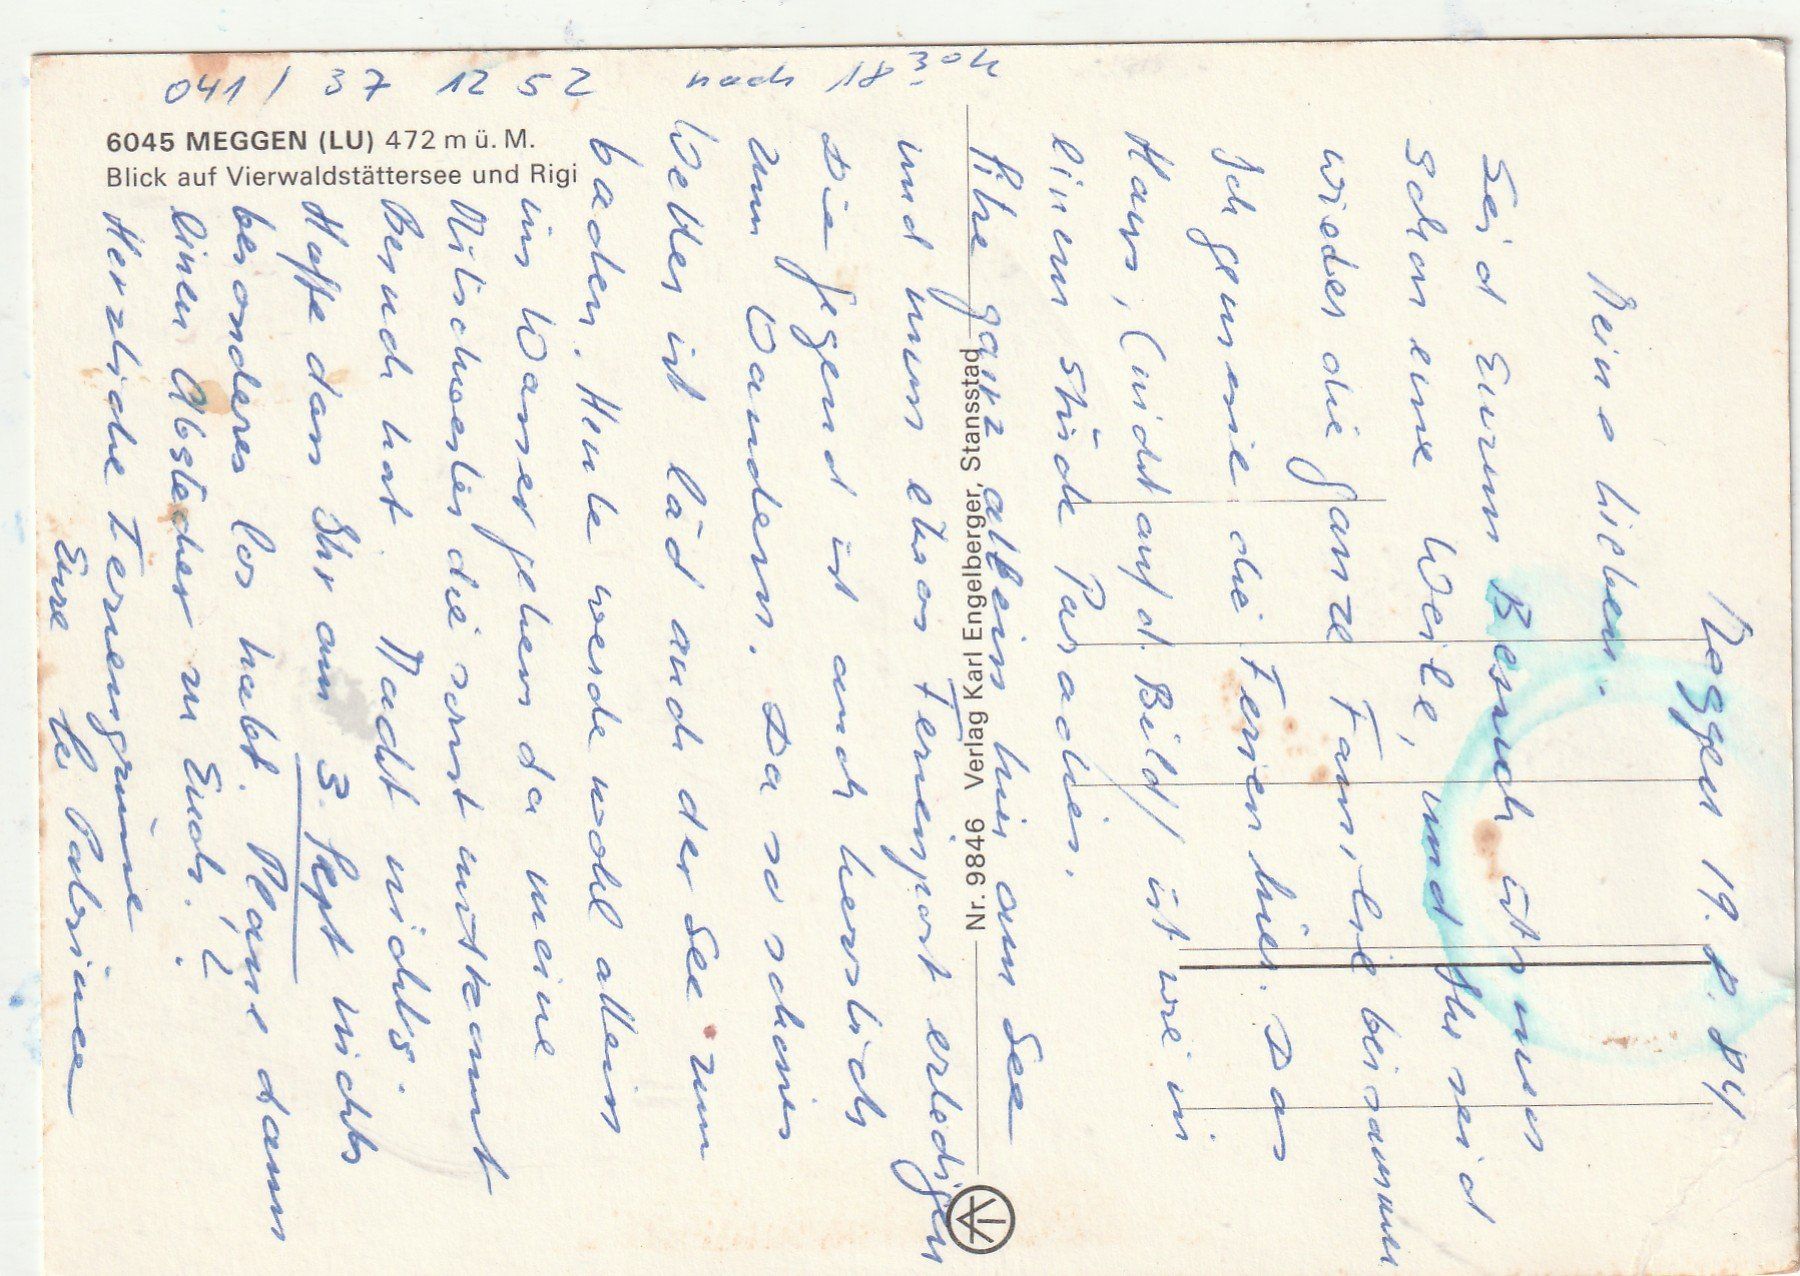 041 / 37 12 52 nach 18 30h
6045 MEGGEN (LU) 472 m ü. M.
Blick auf Vierwaldstättersee und Rigi
Nr. 9846 Verlag Karl Engelberger, Stansstad
Meggen 19. 8. 84
Meine Lieben.
Seid Eurem Besuch ist nun
schon eine Weile, und Ihr seid
wieder die ganze Familie beisammen
Ich geniesse die Ferien hier. Das
Haus, (nicht auf d. Bild) ist wie in
einem stück Paradies.
Sitze ganz allein hier am See
und muss etwas Ferienpost erledigen
Die Gegend ist auch herrlich
zum Wandern. Da so schönes
Wetter ist läd auch der See zum
baden. Heute werde wohl allein
ins Wasser gehen da meine
Mitschwester die sonst mitkommt
Besuch hat. Macht nichts.
Hoffe dass Ihr am 3. Sept nichts
besonderes los habt. Plane dann
einen Abstecher zu Euch. ?
Herzliche Feriengrüsse
Eure Sr. Sabrina